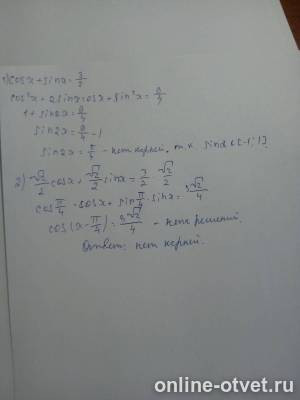 1) cosx + sinx = 3/2
cos²x + 2sinxcosx + sin²x = 9/4
1 + sin2x = 9/4
sin2x = 9/4 - 1
sin2x = 5/4 - нет корней, т.к. sinα ∈ [-1; 1]
2) √2/2 cosx + √2/2 sinx = 3/2 · √2/2
cos π/4 · cosx + sin π/4 · sinx = 3√2/4
cos(x - π/4) = 3√2/4 - нет решений
Ответ: нет корней.
online-otvet.ru